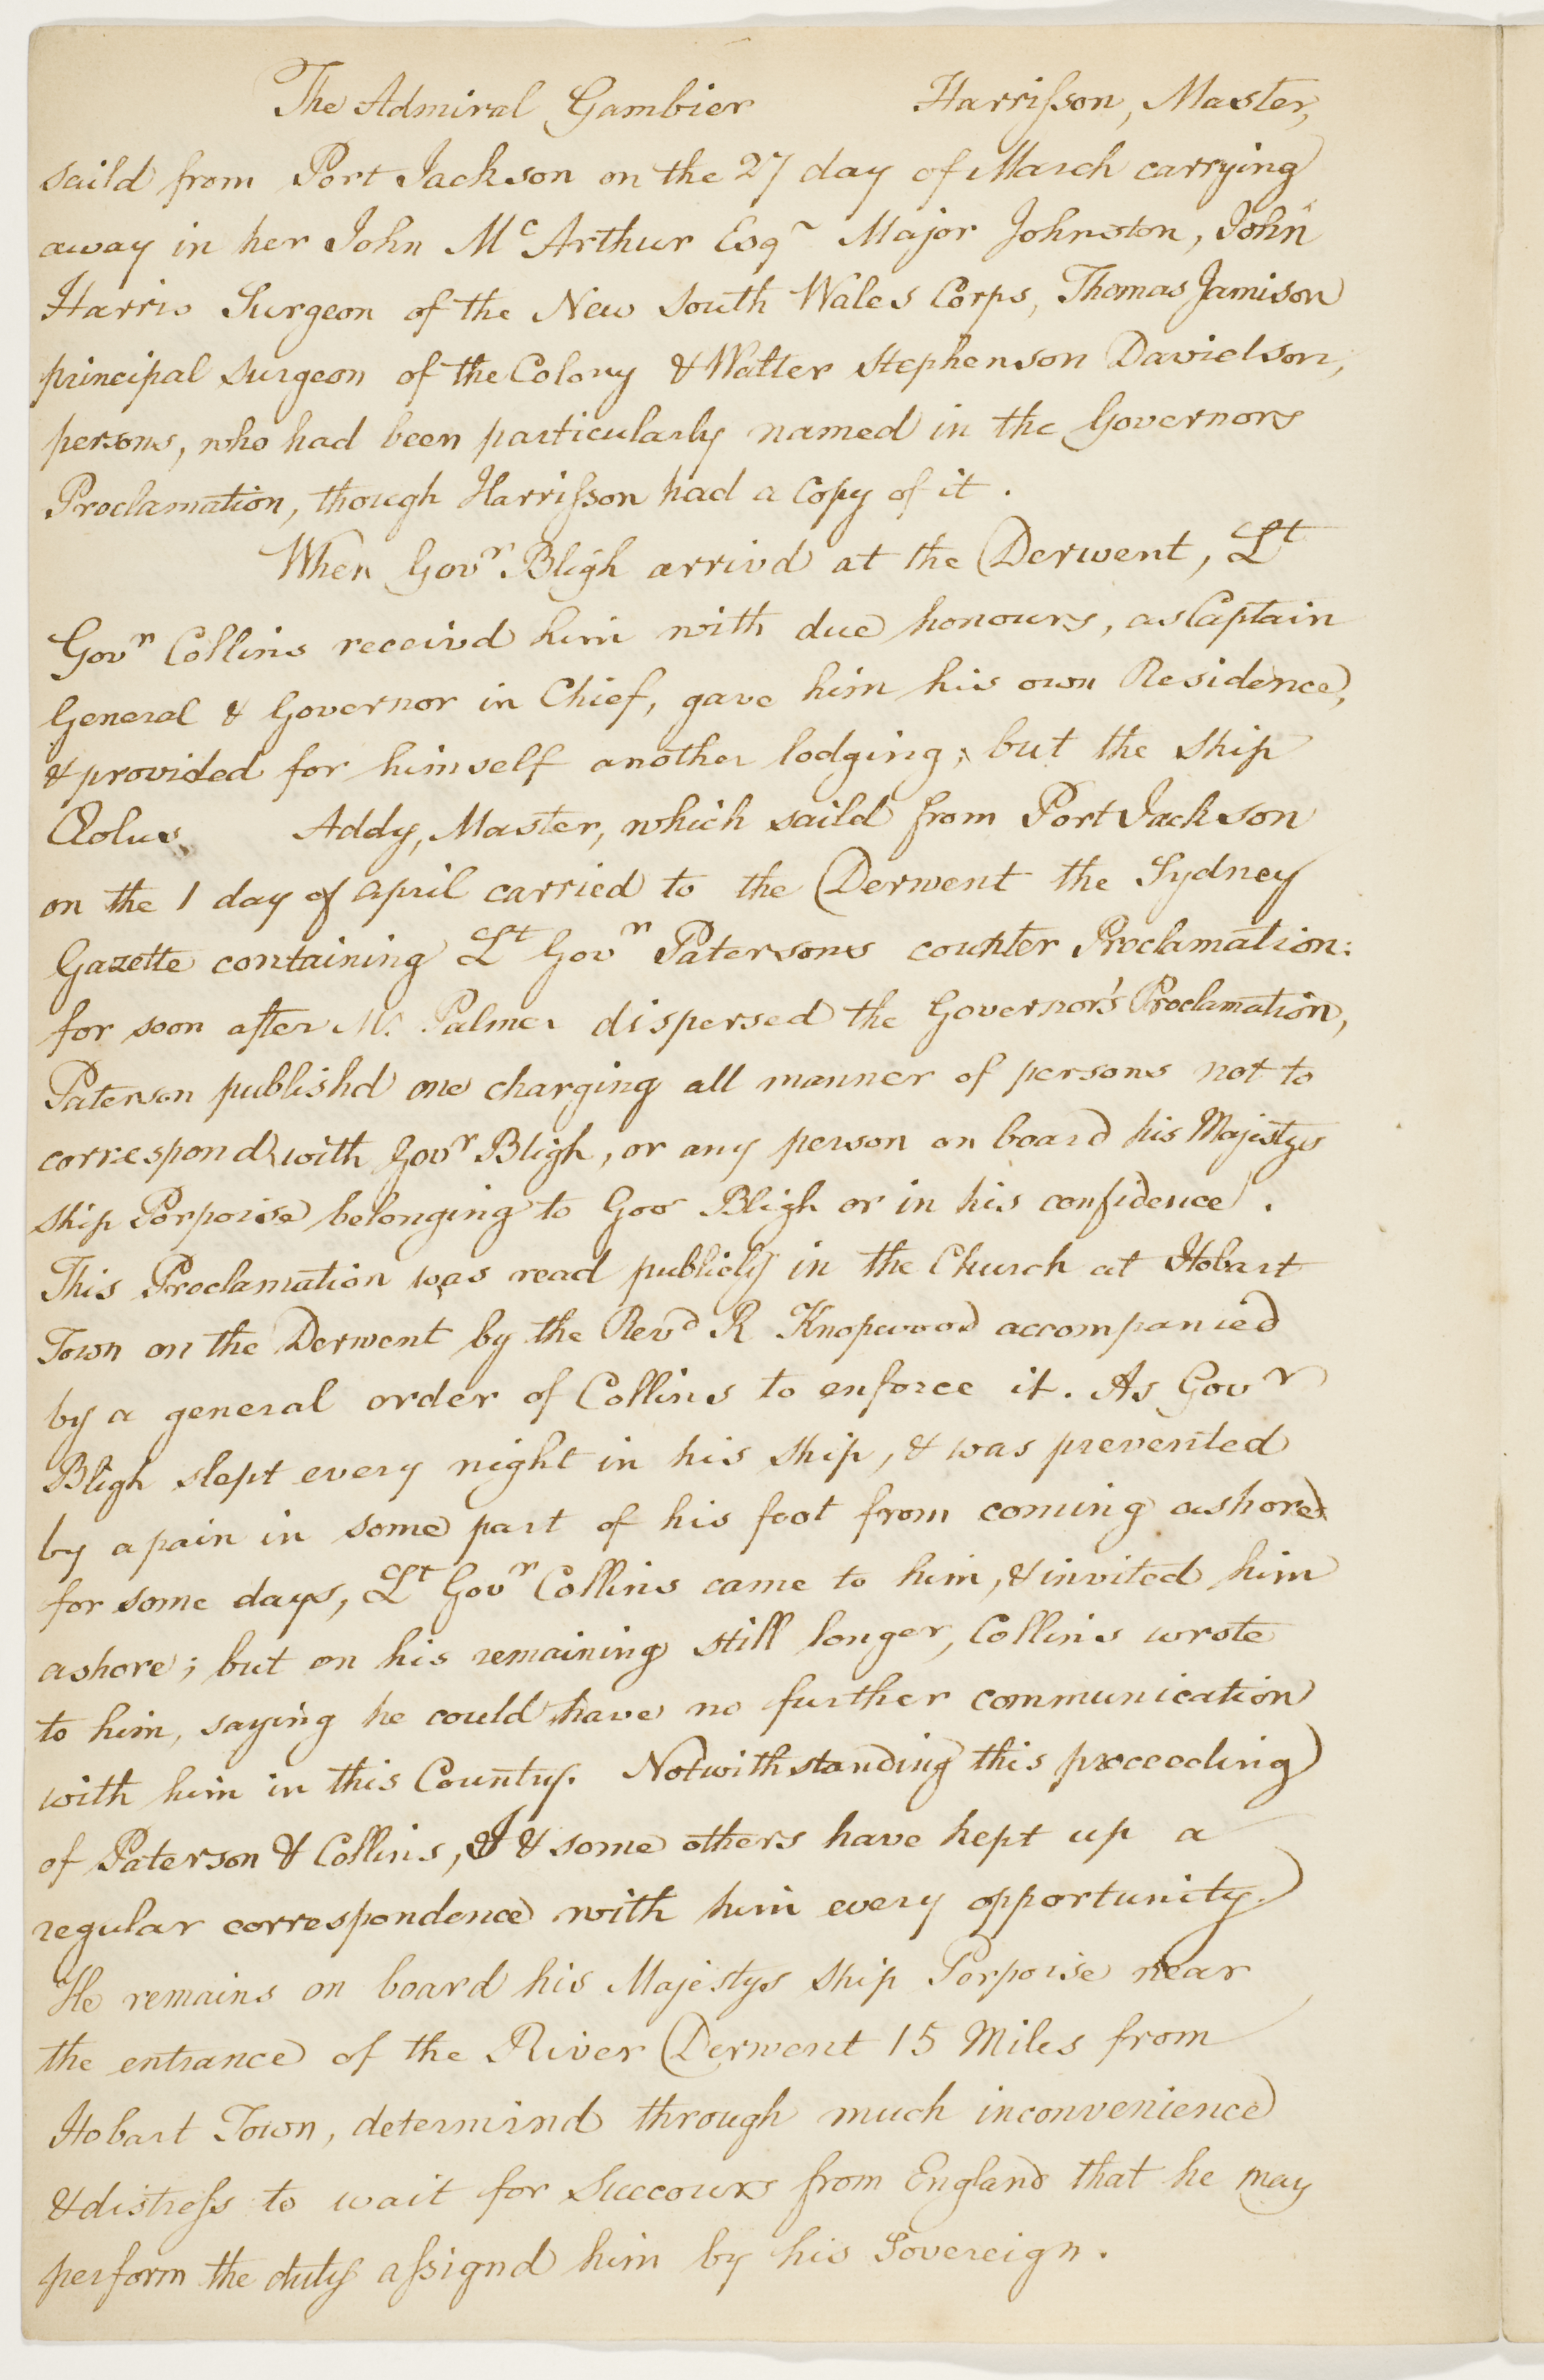 The Admiral Gambier Harrisson, Master,
saild from Port Jackson on the 27 day of March carrying
away in her John Mc Arthur Esqr Major Johnston, John
Harris Surgeon of the New South Wales Corps, Thomas Jamison
principal surgeon of the Colony & Walter Stephenson Davidson,
persons, who had been particularly named in the Governors
Proclamation, though Harrisson had a copy of it.
When Govr. Bligh arrivd at the Derwent, Lt
Govr Collins receivd him with due honours, as Captain
General & Governor in Chief, gave him his own Residence,
& provided for himself another lodging; but the ship
Æolus Addy, Master, which saild from Port Jackson
on the 1 day of april carried to the Derwent the Sydney
Gazette containing Lt Govr Patersons counter Proclamation:
for soon after Mr. Palmer dispersed the Governor's Proclamation,
Paterson publishd one charging all manner of persons not to
correspond with Govr Bligh, or any person on board his Majestys
ship Porpoise belonging to Gov Bligh or in his confidence.
This Proclamation was read publicly in the Church at Hobart
Town on the Derwent by the Revd R Knopwood accompanied
by a general order of Collins to enforce it. As Govr
Bligh slept every night in his ship, & was prevented
by a pain in some part of his foot from coming ashore
for some days, Lt Govr Collins came to him, & invited him
ashore; but on his remaining still longer, Collins wrote
to him, saying he could have no further communication
with him in this Country. Notwithstanding this proceeding
of Paterson & Collins, I & some others have kept up a
regular correspondence with him every opportunity.
He remains on board his Majestys ship Porpoise near
the entrance of the River Derwent 15 Miles from
Hobart Town, determind through much inconvenience
& distress to wait for Succours from England that he may
perform the duty assignd him by his Sovereign.